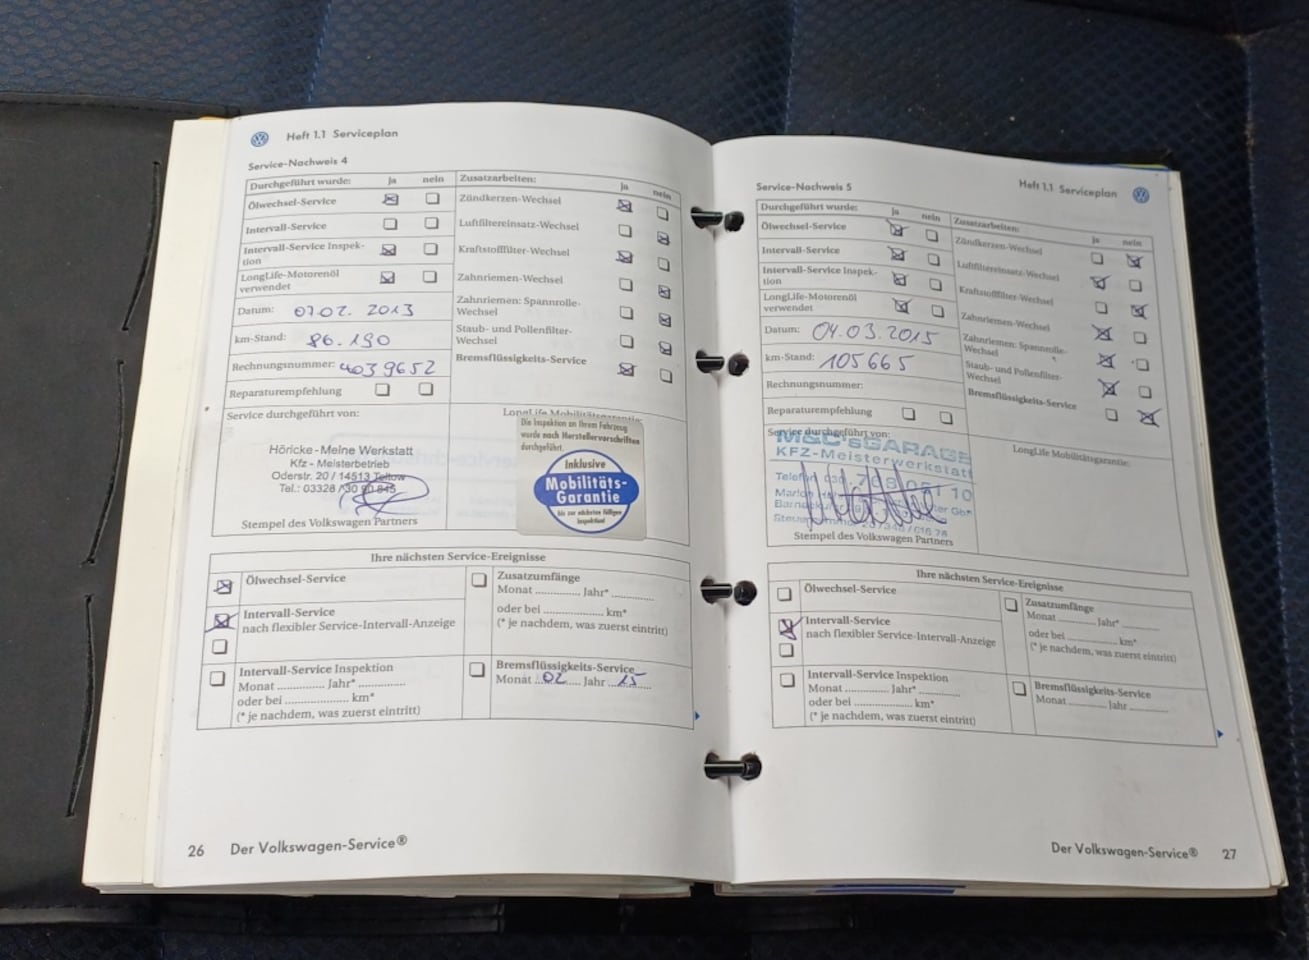 Heft 1.1 Serviceplan
Service-Nachweis 4
Durchgeführt wurde: ja nein
Ölwechsel-Service
Intervall-Service
Intervall-Service Inspek-
tion
LongLife-Motorenöl
verwendet
Datum: 07.02. 2013
km-Stand: 86.190
Rechnungsnummer: 4039652
Reparaturempfehlung
Zusatzarbeiten: ja nein
Zündkerzen-Wechsel
Luftfiltereinsatz-Wechsel
Kraftstofffilter-Wechsel
Zahnriemen-Wechsel
Zahnriemen: Spannrolle-
Wechsel
Staub- und Pollenfilter-
Wechsel
Bremsflüssigkeits-Service
Service durchgeführt von:
Höricke - Meine Werkstatt
Kfz - Meisterbetrieb
Oderstr. 20 / 14513 Teltow
Tel.: 03328 / 30 90 845
Stempel des Volkswagen Partners
LongLife Mobilitätsgarantie:
Die Inspektion an Ihrem Fahrzeug
wurde nach Herstellervorschriften
durchgeführt.
Inklusive
Mobilitäts-
Garantie
bis zur nächsten fälligen
Inspektion!
Ihre nächsten Service-Ereignisse
Ölwechsel-Service
Intervall-Service
nach flexibler Service-Intervall-Anzeige
Intervall-Service Inspektion
Monat .............. Jahr* ..............
oder bei .................... km*
(* je nachdem, was zuerst eintritt)
Zusatzumfänge
Monat .............. Jahr* ..............
oder bei .................... km*
(* je nachdem, was zuerst eintritt)
Bremsflüssigkeits-Service
Monat 02 Jahr 15
26 Der Volkswagen-Service®
Heft 1.1 Serviceplan
Service-Nachweis 5
Durchgeführt wurde: ja nein
Ölwechsel-Service
Intervall-Service
Intervall-Service Inspek-
tion
LongLife-Motorenöl
verwendet
Datum: 04.03.2015
km-Stand: 105665
Rechnungsnummer:
Reparaturempfehlung
Zusatzarbeiten: ja nein
Zündkerzen-Wechsel
Luftfiltereinsatz-Wechsel
Kraftstofffilter-Wechsel
Zahnriemen-Wechsel
Zahnriemen: Spannrolle-
Wechsel
Staub- und Pollenfilter-
Wechsel
Bremsflüssigkeits-Service
Service durchgeführt von:
M&C's GARAGE
KFZ-Meisterwerkstatt
Telefon 030
Stempel des Volkswagen Partners
LongLife Mobilitätsgarantie:
Ihre nächsten Service-Ereignisse
Ölwechsel-Service
Intervall-Service
nach flexibler Service-Intervall-Anzeige
Intervall-Service Inspektion
Monat .............. Jahr* ..............
oder bei .................... km*
(* je nachdem, was zuerst eintritt)
Zusatzumfänge
Monat .............. Jahr* ..............
oder bei .................... km*
(* je nachdem, was zuerst eintritt)
Bremsflüssigkeits-Service
Monat .............. Jahr ..............
Der Volkswagen-Service® 27